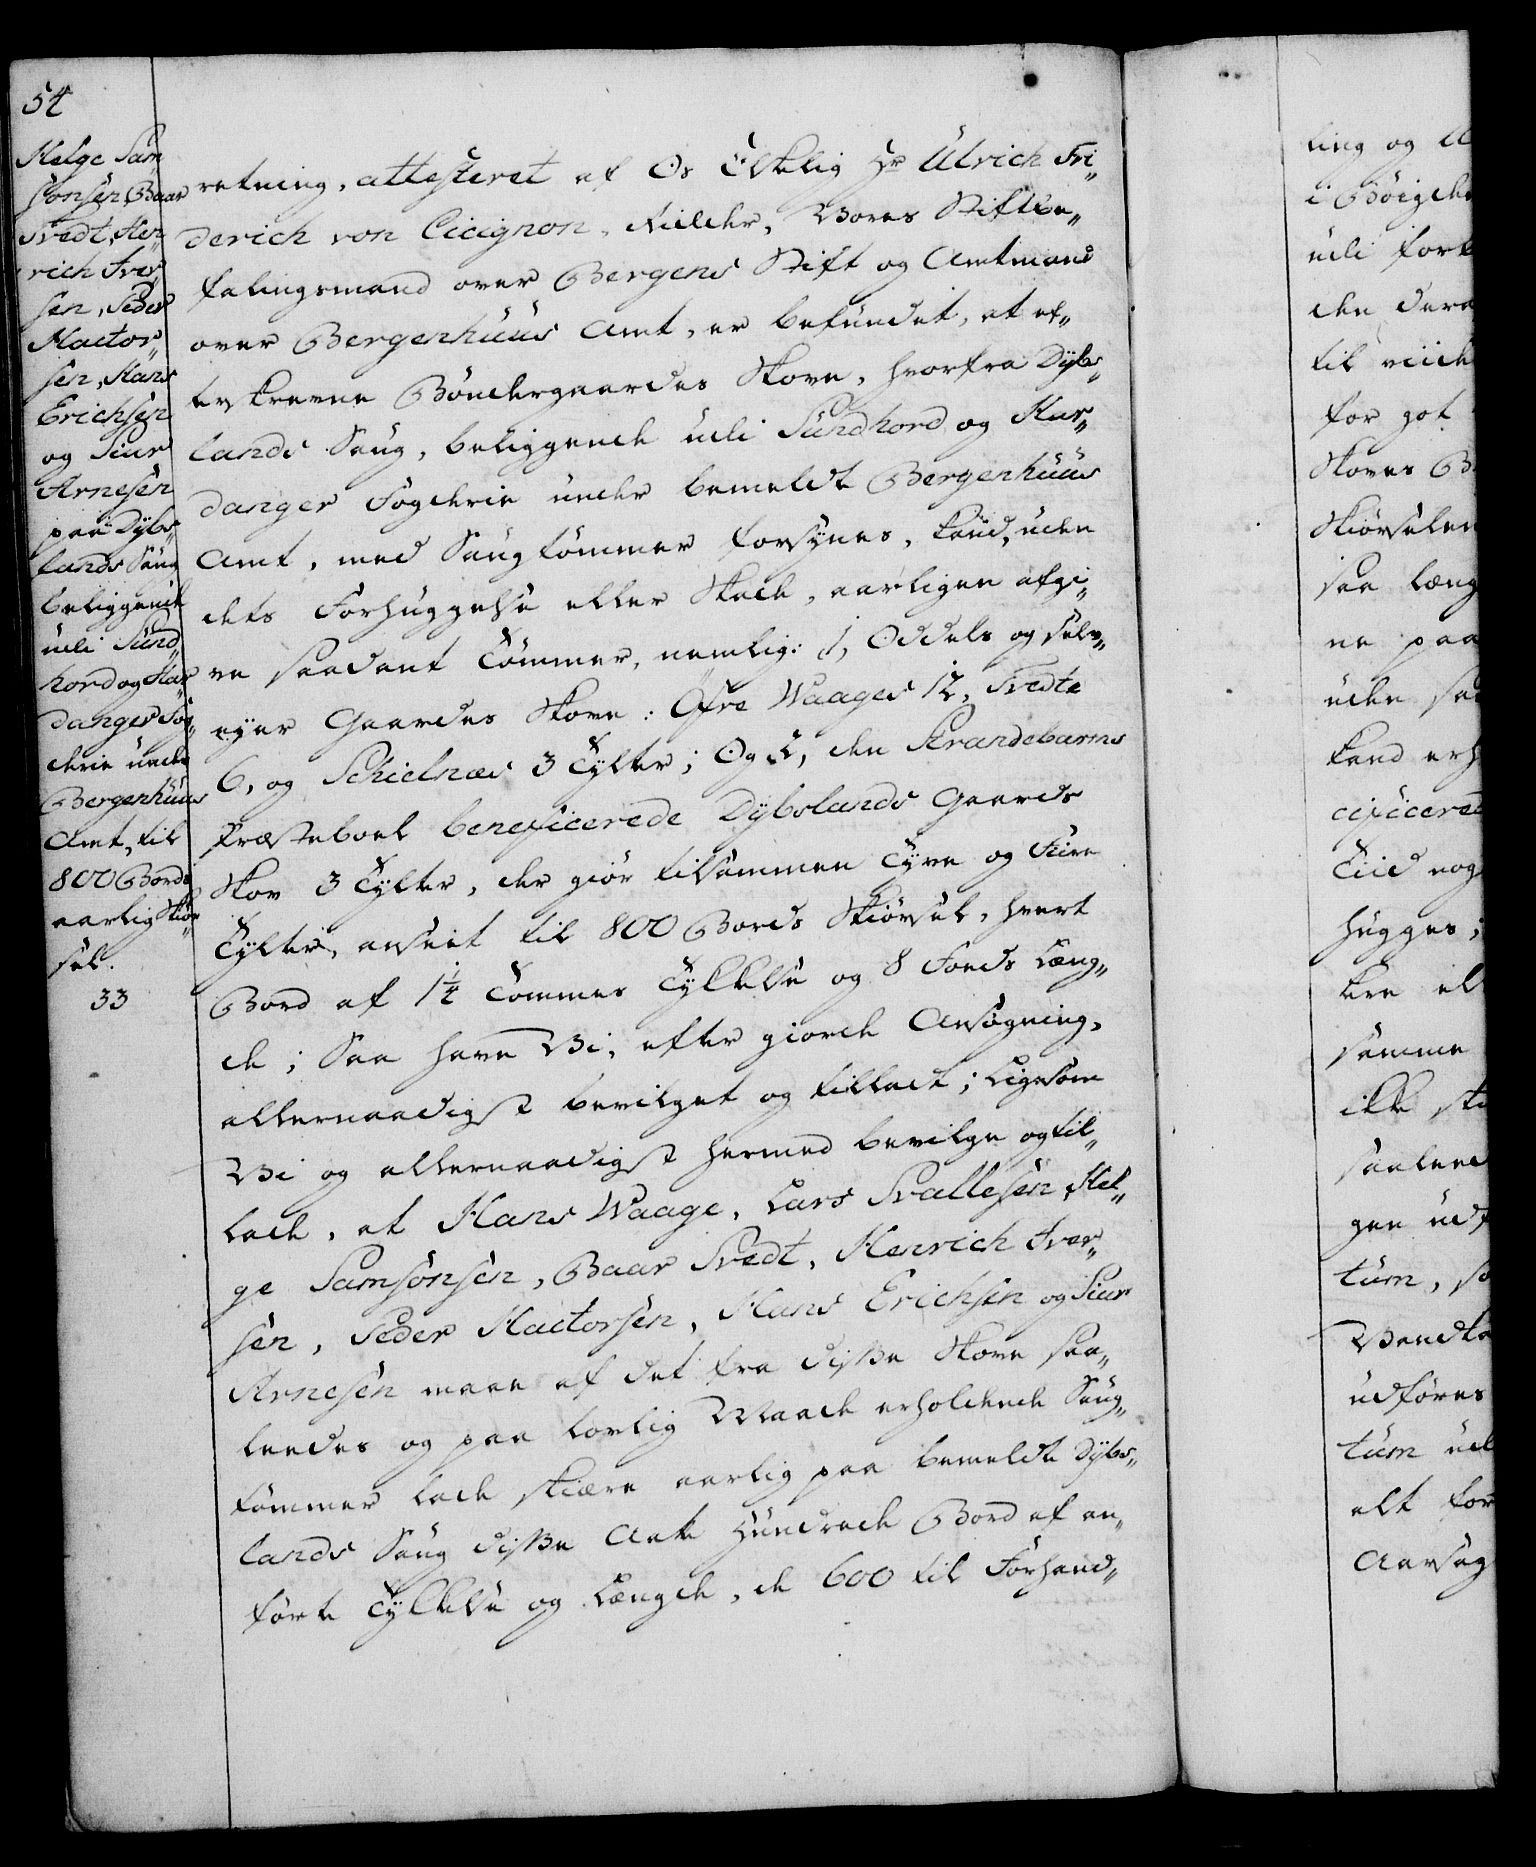 54
Helge Sam
sonsen, Baar
Tvedt, Hen„
rich Iver„
sen, Peder
Hactor„
sen, Hans
Erichsen
og Siur
Arnesen
paa Dybs„
lands Saug
beliggende
udi Sund„
hord og Har„
danger Fog„
derie under
Bergenhuus
Amt, til
800 Bords
aarlig Skiør„
sel.
33
retning, attesteret af Os Elskelig Hr Ulrich Fri„
derich von Cicignon, Ridder, Vores Stiftbe„
falingsmand over Bergens Stift og Amtmand
over Bergenhuus Amt, er befundet, at ef„
terskrevne Bøndergaardes Skove, hvorfra Dybs„
lands Saug, beliggende udi Sundhord og Har„
danger Fogderie under bemeldt Bergenhuus
Amt, med Saugtømmer forsynes, kand, uden
dets Forhuggelse eller Skade, aarligen afgi„
ve saadant Tømmer, nemlig: 1, Oddels og selv„
eyer Gaardes Skove: Øfre Waages 12, Tvedte
6, og Schielnæs 3 Tylter; Og 2, den Strandebarms
Præsteboel beneficerede Dybslands Gaards
Skov 3 Tylter, der giør tilsammen Tyve og Fiire
Tylter, anseet til 800 Bords Skiørsel, hvert
Bord af 1 1/4 Tommes Tykkelse og 8 Foeds Læng„
de; Saa have Vi, efter giorde Ansøgning,
allernaadigst bevilget og tilladt; Ligesom
Vi og allernaadigst hermed bevilge og til„
lade, at Hans Waage, Lars Tvallesen, Hel„
ge Samsonsen, Baar Tvedt, Henrich Iver„
sen, Peder Hactorsen, Hans Erichsen og Siur
Arnesen maae af det fra disse Skove saa„
ledes og paa lovlig Maade erholdende Saug„
tømmer lade skiære aarlig paa bemeldte Dybs„
lands Saug disse Aatte Hundrede Bord af an„
førte Tykkelse og Længde, de 600 til Forhand„
ling og
i Bøigde
udi for
den der
til
for got
Skoves
Skiørselen
saa læng
ne paa
uden
kand erh
cificered
Tiid nog
hugges;
kre
samme
ikke
saaled
gen udf
tum,
Vendt
udføres
tum
alt for
Aarsag